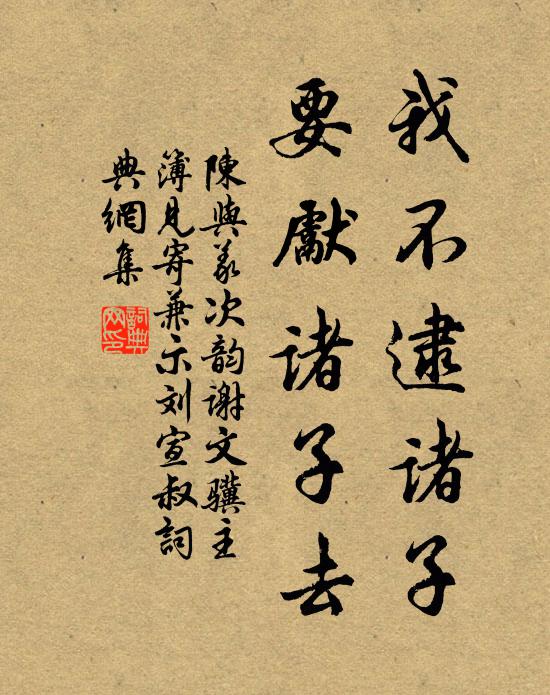 我不逮诸子
要獻诸子去
陳與義次韵谢文骥主
簿見寄兼示刘宣叔詞
典網集
詞典
网印